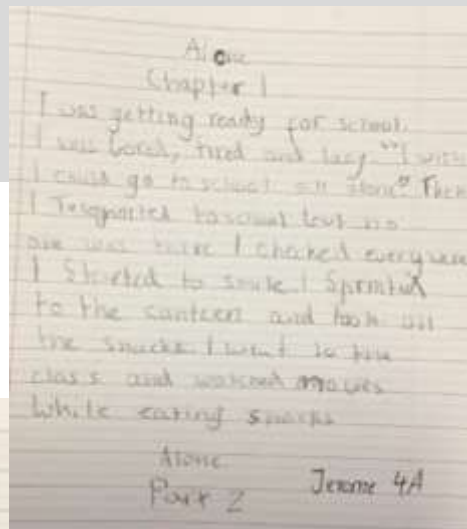 Alone
Chapter 1
I was getting ready for school.
I was bored, tired and lazy "I wish
I could go to school all alone" Then
I Teleported to school but no
one was there I checked everywere
I Started to smile I Sprinted
to the canteen and took all
the snacks I went to the
class and watched movies
While eating snacks
Alone
Part 2
Jerome 4A